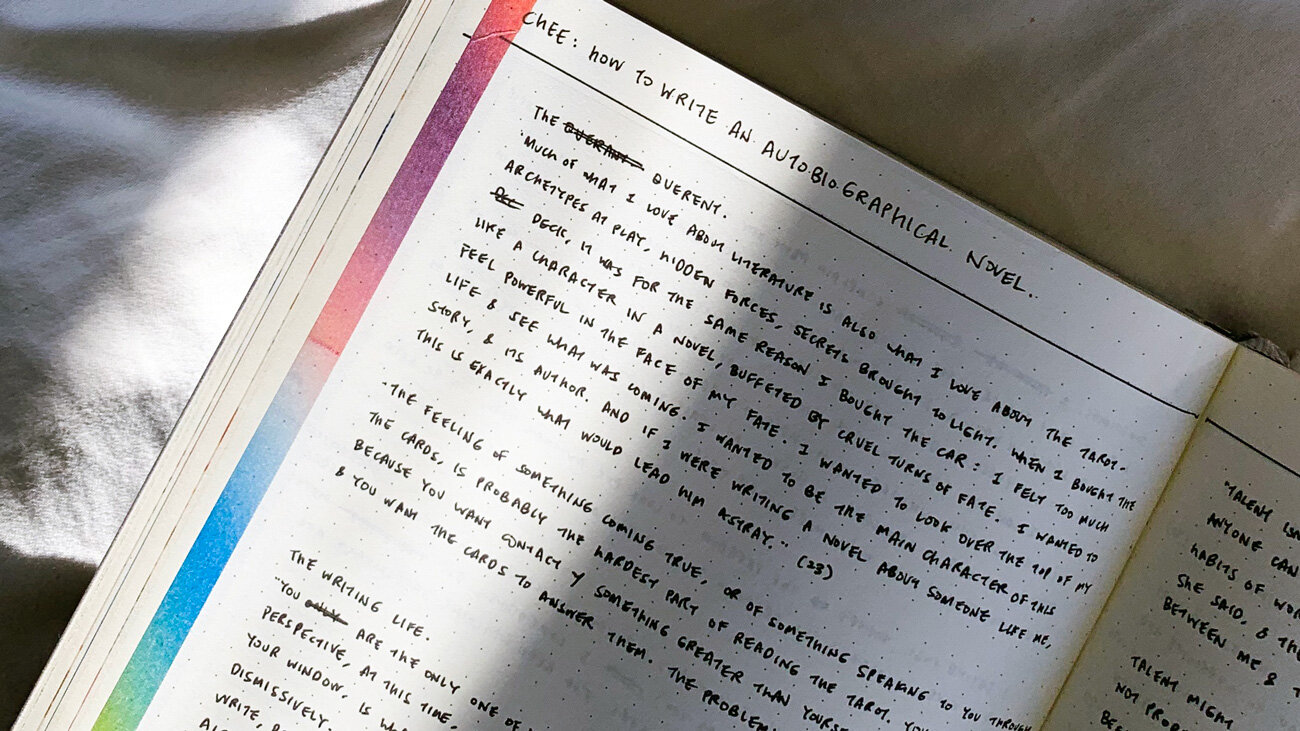 CHEE: HOW TO WRITE AN AUTO.BIO.GRAPHICAL. NOVEL.
THE QUERENT.
"MUCH OF WHAT I LOVE ABOUT LITERATURE IS ALSO WHAT I LOVE ABOUT THE TAROT-
ARCHETYPES AT PLAY, HIDDEN FORCES, SECRETS BROUGHT TO LIGHT. WHEN I BOUGHT THE
DECK, IT WAS FOR THE SAME REASON I BOUGHT THE CAR: I FELT TOO MUCH
LIKE A CHARACTER IN A NOVEL, BUFFETED BY CRUEL TURNS OF FATE. I WANTED TO
FEEL POWERFUL IN THE FACE OF MY FATE. I WANTED TO LOOK OVER THE TOP OF MY
LIFE & SEE WHAT WAS COMING. I WANTED TO BE THE MAIN CHARACTER OF THIS
STORY, & ITS AUTHOR. AND IF I WERE WRITING A NOVEL ABOUT SOMEONE LIKE ME,
THIS IS EXACTLY WHAT WOULD LEAD HIM ASTRAY." (23)
"THE FEELING OF SOMETHING COMING TRUE, OR OF SOMETHING SPEAKING TO YOU THROUGH
THE CARDS, IS PROBABLY THE HARDEST PART OF READING THE TAROT. YOU
BECAUSE YOU WANT CONTACT SOMETHING GREATER THAN
& YOU WANT THE CARDS TO ANSWER THEM. THE PROBLEM
THE WRITING LIFE.
"YOU ARE THE ONLY ONE OF
PERSPECTIVE, AT THIS TIME,
YOUR WINDOW, IS
DISMISSIVELY.
WRITE,
"TALENT
ANYONE CAN
HABITS OF
SHE SAID, &
BETWEEN ME &
TALENT MIGHT
NOT